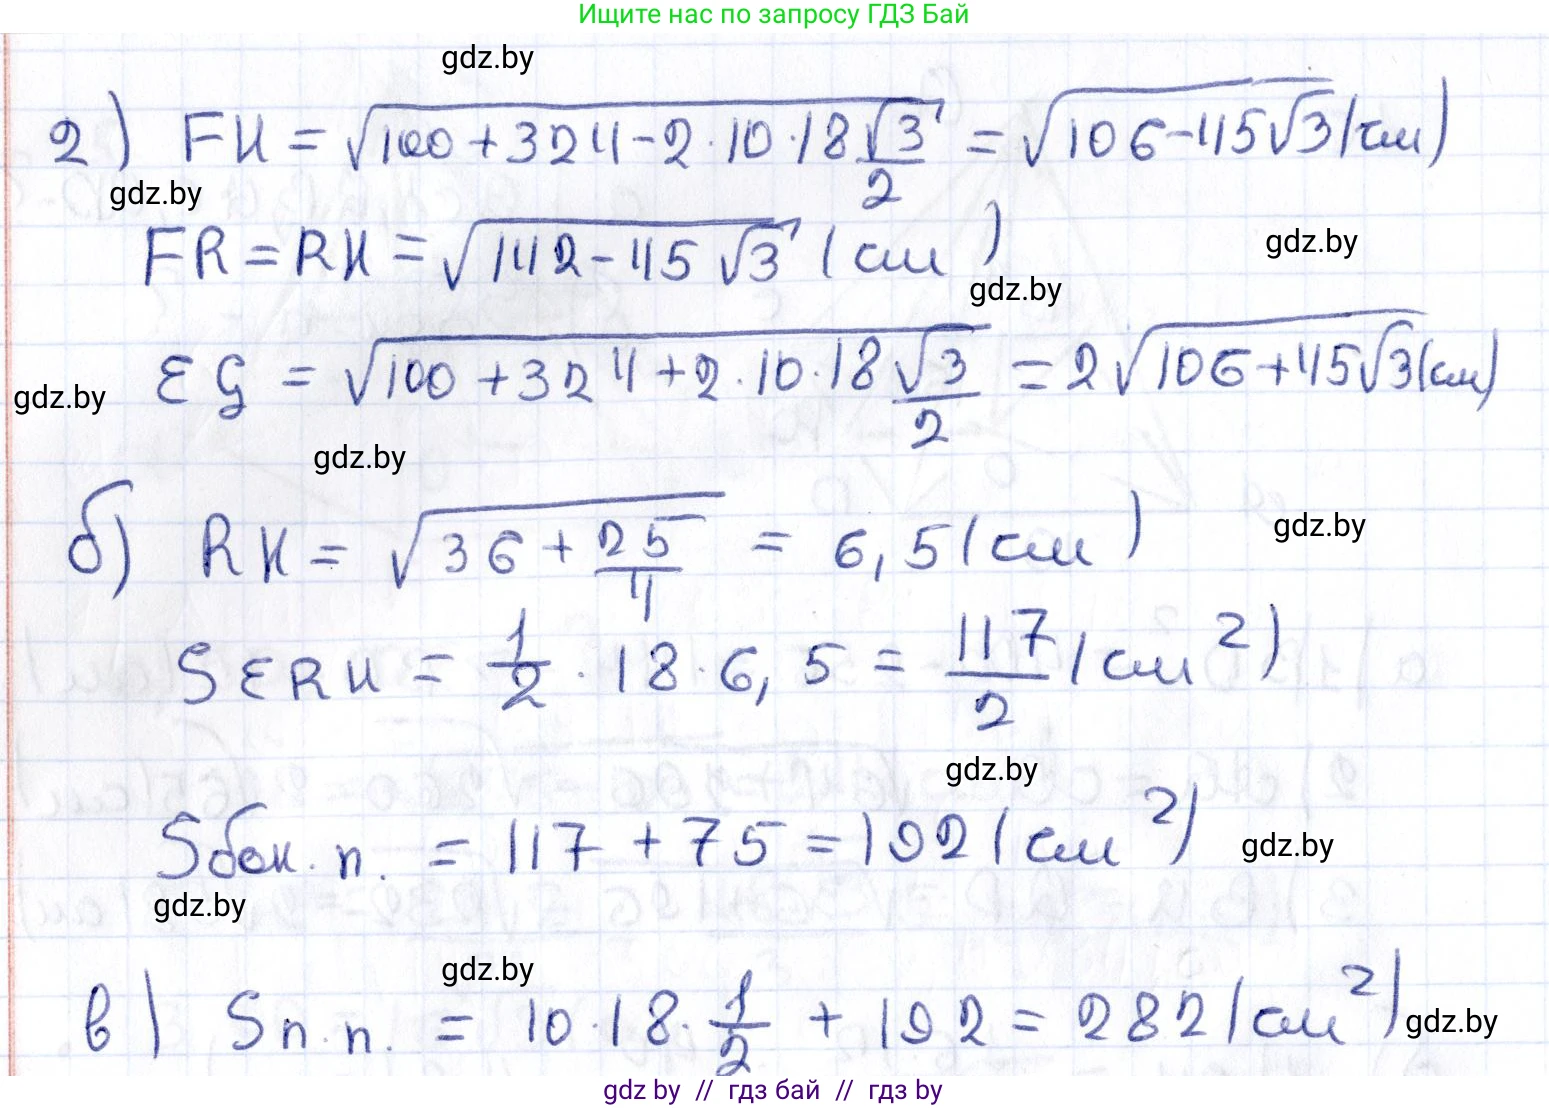 Ищите нас по запросу ГДЗ Бай
gdz.by
2) FK = √(100 + 324 - 2 · 10 · 18 √3/2) = √(106 - 45√3) (см)
gdz.by
FR = RK = √(142 - 45√3) (см)
gdz.by
gdz.by
EG = √(100 + 324 + 2 · 10 · 18 √3/2) = 2√(106 + 45√3) (см)
gdz.by
gdz.by
б) RK = √(36 + 25/4) = 6,5 (см)
gdz.by
SERK = 1/2 · 18 · 6,5 = 117/2 (см²)
gdz.by
Sбок. п. = 117 + 75 = 192 (см²)
gdz.by
gdz.by
gdz.by
в) Sп. п. = 10 · 18 · 1/2 + 192 = 282 (см²)
gdz.by
gdz by // гдз бай // гдз by